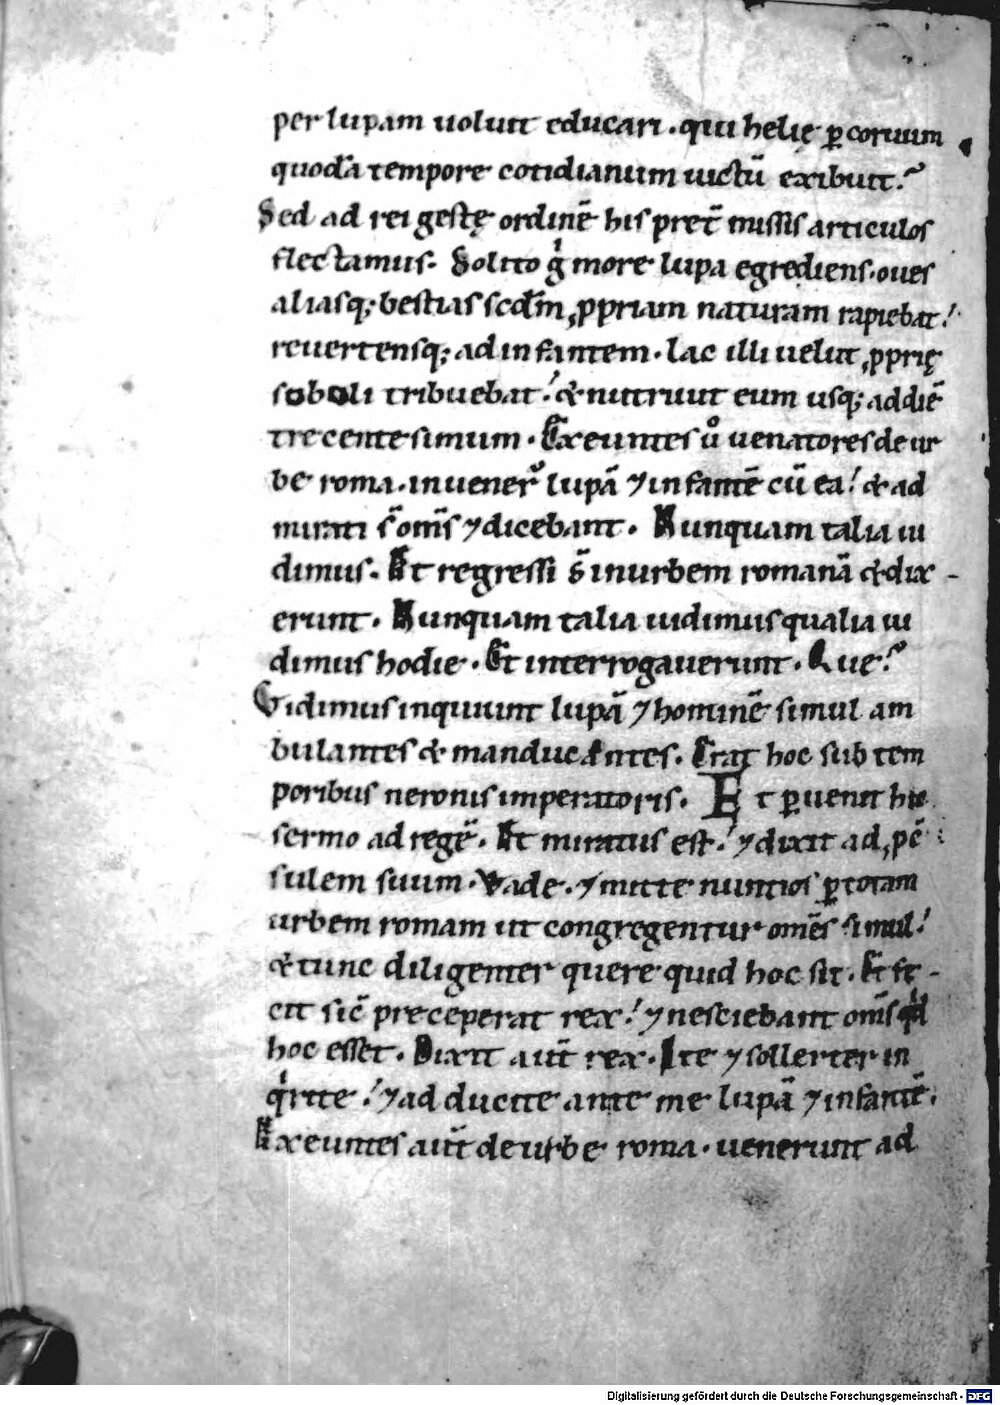 per lupam uoluit educari . qui helię ꝑ coruum
quodā tempore cotidianum uictū exibuit .
Sed ad rei gestę ordinē his pret̄missis articulos
flectamus . Solito gͥ more lupa egrediens . oues
aliasq; bestias scd̄m ꝓpriam naturam rapiebat .
reuertensq; ad infantem . lac illi uelut ꝓprię
soboli tribuebat . & nutriuit eum usq; ad diē
trecentesimum . Exeuntes uͦ uenatores de ur
be roma . inuenerͦ lupā ⁊ infantē cū ea . & ad
mirati s̄ om̄s ⁊ dicebant . Nunquam talia ui
dimus . Et regressi s̄ in urbem romanā & dix -
erunt . Nunquam talia uidimus qualia ui
dimus hodie . Et interrogauerunt . Que .
Vidimus inquiunt lupā ⁊ hominē simul am
bulantes & manducantes . Erat hoc sub tem
poribus neronis imperatoris . Et ꝑuenit hic
sermo ad regē . Et miratus est . ⁊ dixit ad ꝓpē
sulem suum . Vade . ⁊ mitte nuntios ꝑ totam
urbem romam ut congregentur omēs simul .
& tunc diligenter quere quid hoc sit . Et fe -
cit sic̄ preceperat rex . ⁊ nesciebant om̄s qd̄
hoc esset . Dixit aut̄ rex . Ite ⁊ sollerter in
qͥrite . ⁊ adducite ante me lupā ⁊ infantē .
Exeuntes aut̄ de urbe roma . uenerunt ad
Digitalisierung gefördert durch die Deutsche Forschungsgemeinschaft - DFG